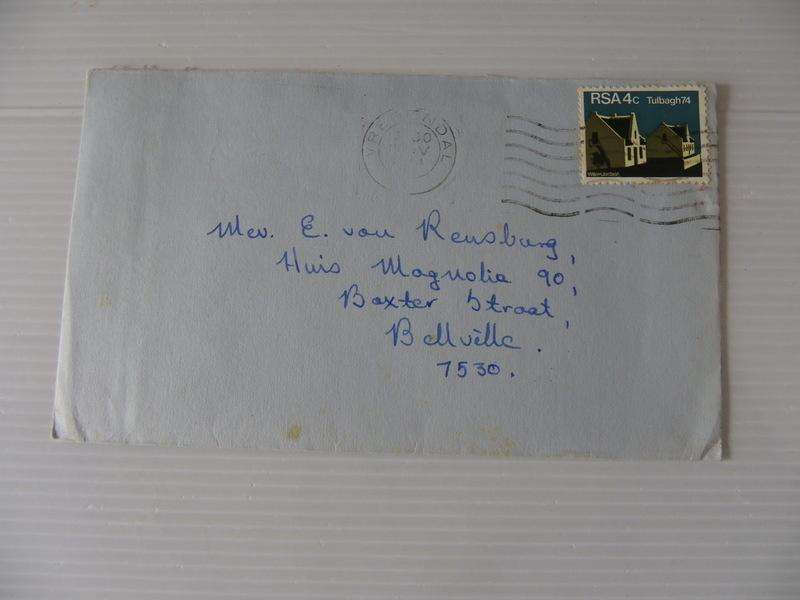 RSA 4c Tulbagh 74
Mev. E. van Rensburg,
Huis Magnolia 90,
Baxter Straat,
Bellville.
7530.